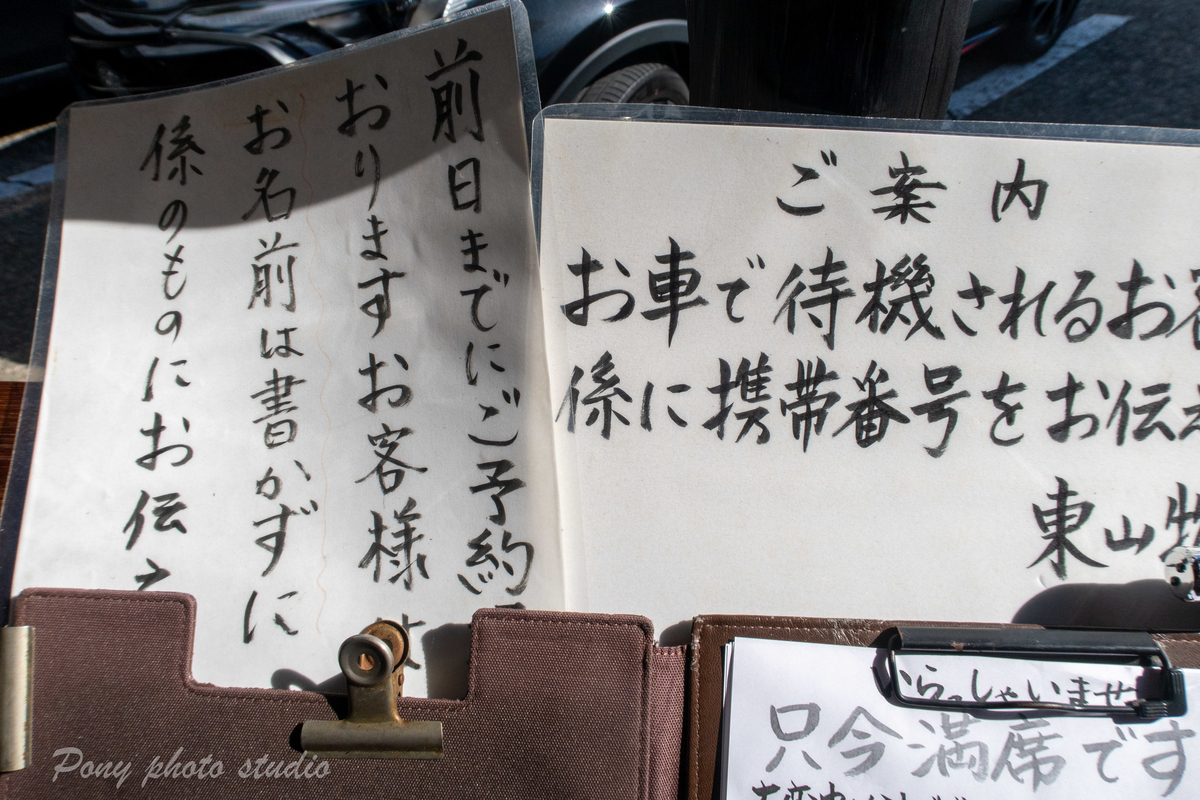 前日までにご予約
おりますお客様は
お名前は書かずに
係のものにお伝え
ご案内
お車で待機されるお客
係に携帯番号をお伝え
東山
いらっしゃいませ
只今満席です
Pony photo studio